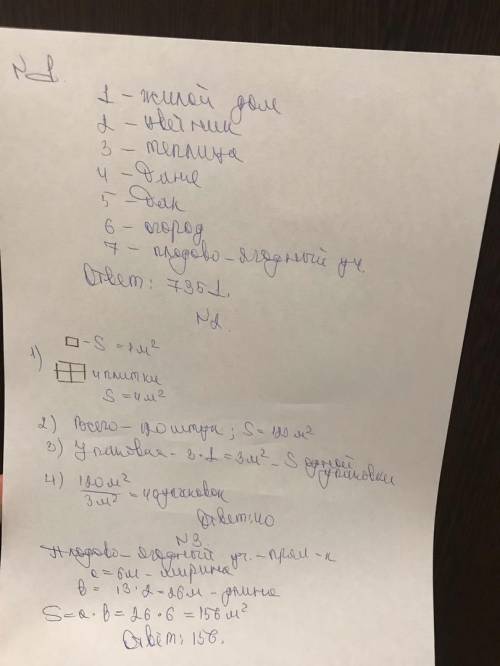 N1.
1 – жилой дом
2 – цветник
3 – теплица
4 –
5 – бак
6 – огород
7 – плодово-ягодный уч.
Ответ: 7351.
N2.
1) □ – S = 1м²
4 плитки
S = 4м²
2) Всего – 120 штук; S = 120м²
3) Упаковка – 3·1 = 3м² – S одной упаковки
4) 120м²/3м² = 40 упаковок
Ответ: 40
N3.
Плодово-ягодный уч. – прям-к
a = 6м – ширина
b = 13·2 = 26м – длина
S = a·b = 26·6 = 156м²
Ответ: 156.